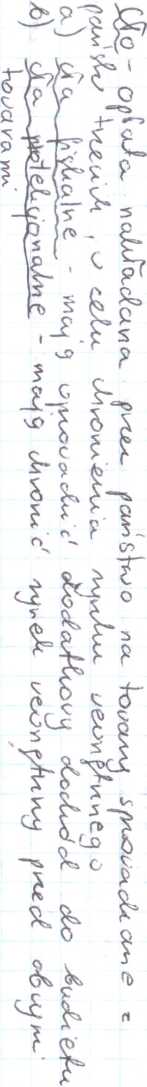 Cło - opłata nakładana przez państwo na towary sprowadzane z
państw trzecich, w celu chronienia rynku wewnętrznego
a) cła fiskalne - mają wprowadzić dodatkowy dochód do budżetu
b) cła protekcjonalne - mają chronić rynek wewnętrzny przed obcymi
towarami